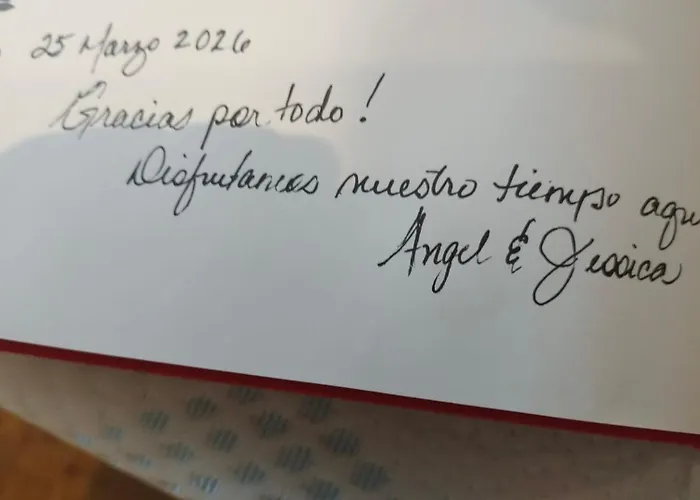 25 Marzo 2026
Gracias por todo!
Disfrutamos nuestro tiempo aqu
Angel & Jessica